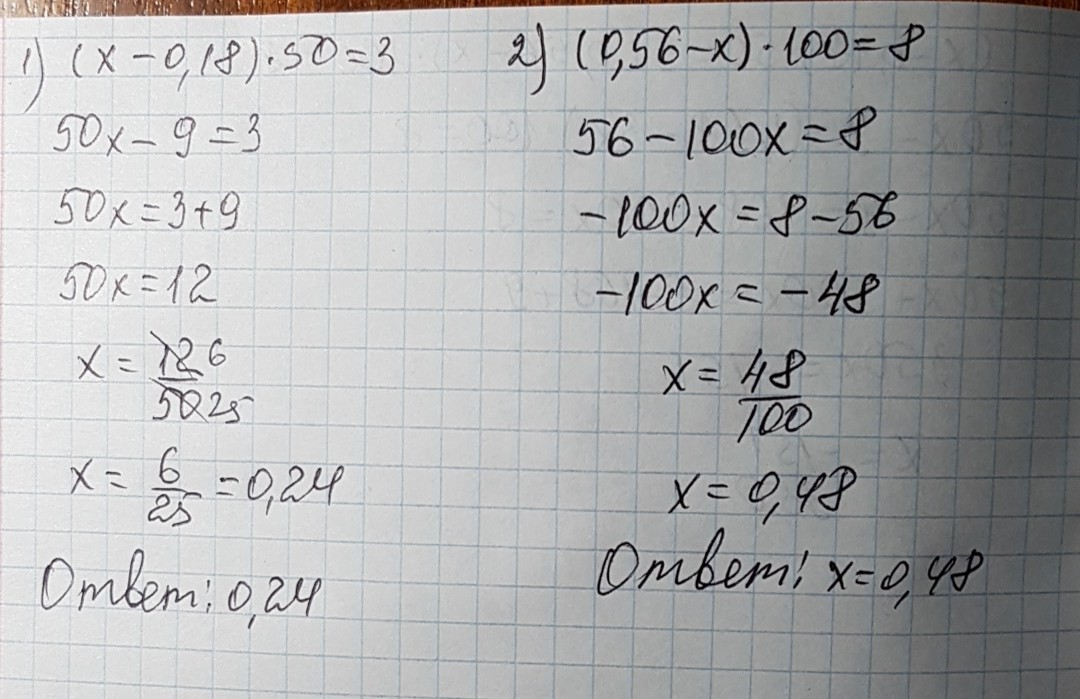 1) (x – 0,18) · 50 = 3
50x – 9 = 3
50x = 3 + 9
50x = 12
x = 12 6 / 50 25
x = 6/25 = 0,24
Ответ: 0,24
2) (0,56 – x) · 100 = 8
56 – 100x = 8
–100x = 8 – 56
–100x = –48
x = 48/100
x = 0,48
Ответ: x = 0,48